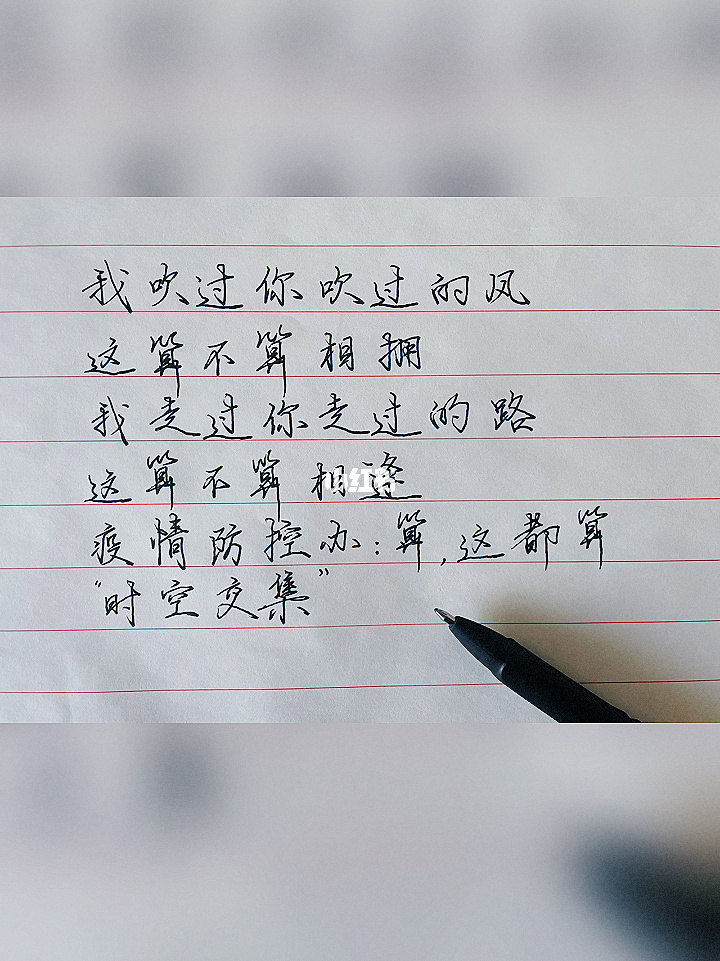 我吹过你吹过的风
这算不算相拥
我走过你走过的路
这算不算相逢
小红书
疫情防控办：算，这都算
“时空交集”